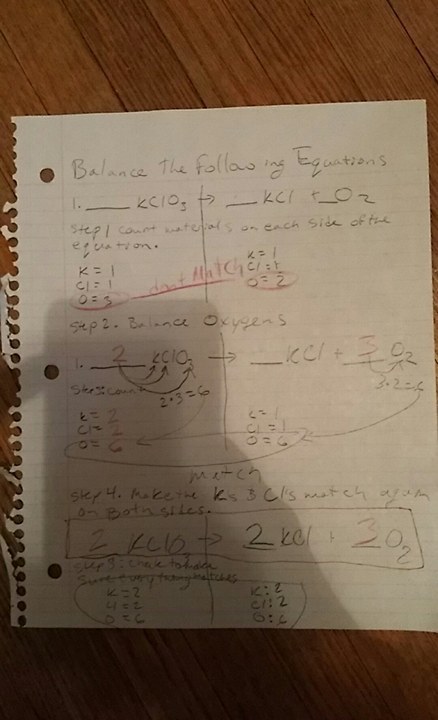 Balance The following Equations
1. ___ KClO3 → __ KCl + _O2
Step 1 count materials on each side of the
equation.
K = 1
Cl = 1
O = 3
don't Match
K = 1
Cl = 1
O = 2
Step 2. Balance Oxygens
1. 2 KClO3 → __ KCl + 3 O2
2·3=6
3·2=6
Step 3: count
K = 2
Cl = 2
O = 6
K = 1
Cl = 1
O = 6
match
Step 4. Make the K's & Cl's match again
on Both sides.
2 KClO → 2 KCl + 3 O2
make
sure everything matches
K = 2
Cl = 2
O = 6
K: 2
Cl: 2
O: 6